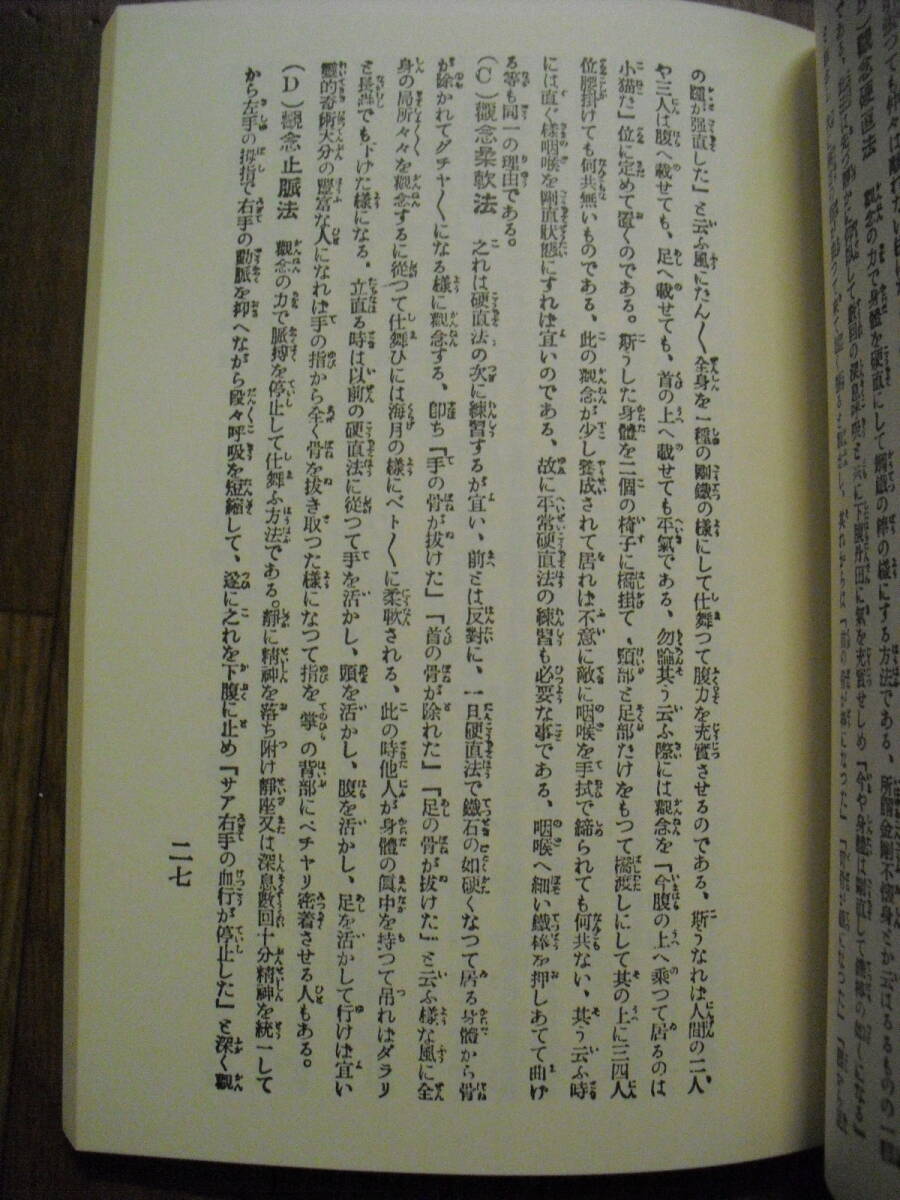 の頭が强直した」と云ふ風にだん〱全身を一種の剛鐵の樣にして仕舞つて腹力を充實させるのである、斯うなれば人間の二人
や三人は腹へ載せても、足へ載せても、首の上へ載せても平氣である、勿論其う云ふ際には觀念を「今腹の上へ乘つて居るのは
小猫だ」位に定めて置くのである。斯うした身體を二個の椅子に橋掛て、頸部と足部だけをもつて橋渡しにして其の上に三四人
位腰掛けても何共無いものである、此の觀念が少し養成されて居れば不意に敵に咽喉を手拭で締られても何共ない、其う云ふ時
には直ぐ樣咽喉を剛直狀態にすれば宜いのである、故に平常硬直法の練習も必要な事である、咽喉へ細い鐵棒を押しあてて曲げ
る等も同一の理由である。
(C)觀念柔軟法 之れは硬直法の次に練習するが宜い、前とは反對に、一旦硬直法で鐵石の如硬くなつて居る身體から骨
が除かれてグチャ〱になる樣に觀念する、卽ち「手の骨が拔けた」「首の骨が除れた」「足の骨が拔けた」と云ふ樣な風に全
身の局所々々を觀念するに從つて仕舞ひには海月の樣にベト〱に柔軟される、此の時他人が身體の眞中を持つて吊ればダラリ
と長芋でも下げた樣になる、立直る時は以前の硬直法に從つて手を活かし、頭を活かし、腹を活かし、足を活かして行けば宜い
靈的奇術天分の豐富な人になれば手の指から全く骨を拔き取つた樣になつて指を掌の背部にペチャリ密着させる人もある。
(D)觀念止脈法 觀念の力で脈搏を停止して仕舞ふ方法である。靜に精神を落ち附け靜座又は深息數回十分精神を統一して
から左手の拇指で右手の動脈を抑へながら段々呼吸を短縮して、遂に之れを下腹に止め「サア右手の血行が停止した」と深く觀
二七